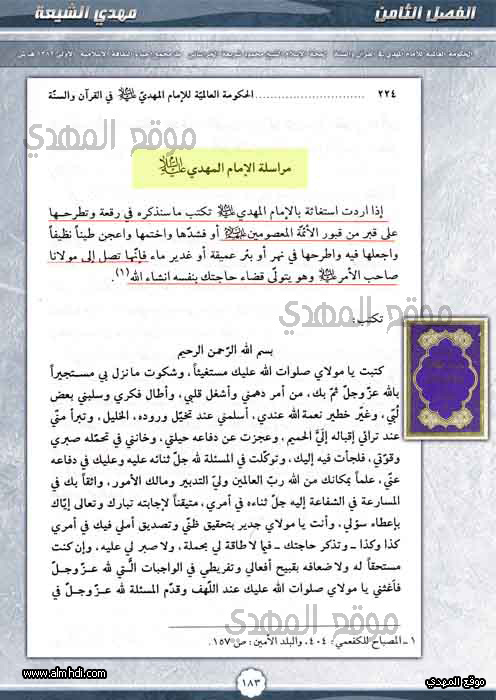 الفصل الثامن
مهدي الشيعة
موقع المهدي
٢٢٤ ........................ الحكومة العالميّة للإمام المهديّ عليه السلام في القرآن والسنّة
مراسلة الإمام المهدي عليه السلام
إذا أردت استغاثة بالإمام المهدي عليه السلام تكتب ما سنذكره في رقعة وتطرحها
على قبر من قبور الأئمّة المعصومين عليهم السلام أو فشدّها واختمها واعجن طيناً نظيفاً
واجعلها فيه واطرحها في نهر أو بئر عميقة أو غدير ماء فإنّها تصل إلى مولانا
صاحب الأمر عليه السلام وهو يتولّى قضاء حاجتك بنفسه انشاء الله (١).
موقع المهدي
تكتب:
بسم الله الرّحمن الرحيم
كتبت يا مولاي صلوات الله عليك مستغيثاً، وشكوت ما نزل بي مستجيراً
بالله عزّ وجلّ ثمّ بك، من أمر دهمني وأشغل قلبي، وأطال فكري وسلبني بعض
لُبّي، وغيّر خطير نعمة الله عندي، أسلمني عند تخيّل وروده، الخليل، وتبرأ منّي
عند ترائي إقباله إليَّ الحميم، وعجزت عن دفاعه حيلتي، وخانني في تحمّله صبري
وقوّتي، فلجأت فيه إليك، وتوكّلت في المسئلة لله جلّ ثنائه عليه وعليك في دفاعه
عنّي، علماً بمكانك من الله ربّ العالمين وليّ التدبير ومالك الأمور، واثقاً بك في
المسارعة في الشفاعة إليه جلّ ثناءه في أمري، متيقناً لإجابته تبارك وتعالى إيّاك
بإعطاء سؤلي، وأنت يا مولاي جدير بتحقيق ظنّي وتصديق أملي فيك في أمري
كذا وكذا ـ وتذكر حاجتك ـ فيما لا طاقة لي بحمله، ولا صبر لي عليه، وإن كنت
مستحقاً له ولا ضعافه بقبيح أفعالي وتفريطي في الواجبات الّتي لله عزّ وجلّ
فأغثني يا مولاي صلوات الله عليك عند اللّهف وقدّم المسئلة لله عزّ وجلّ في
موقع المهدي
١ ـ المصباح للكفعمي: ٤٠٤، والبلد الأمين: ص١٥٧.
www.almhdi.com
١٨٣
موقع المهدي